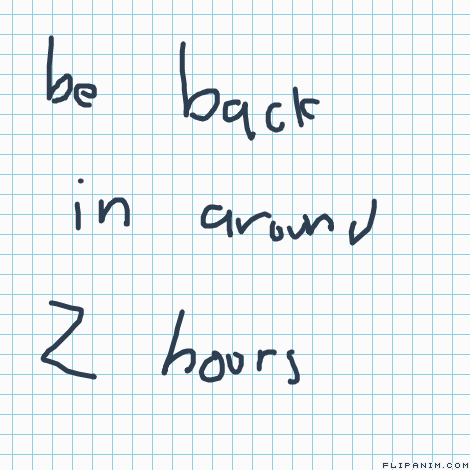 be back
in around
2 hours
FLIPANIM.COM